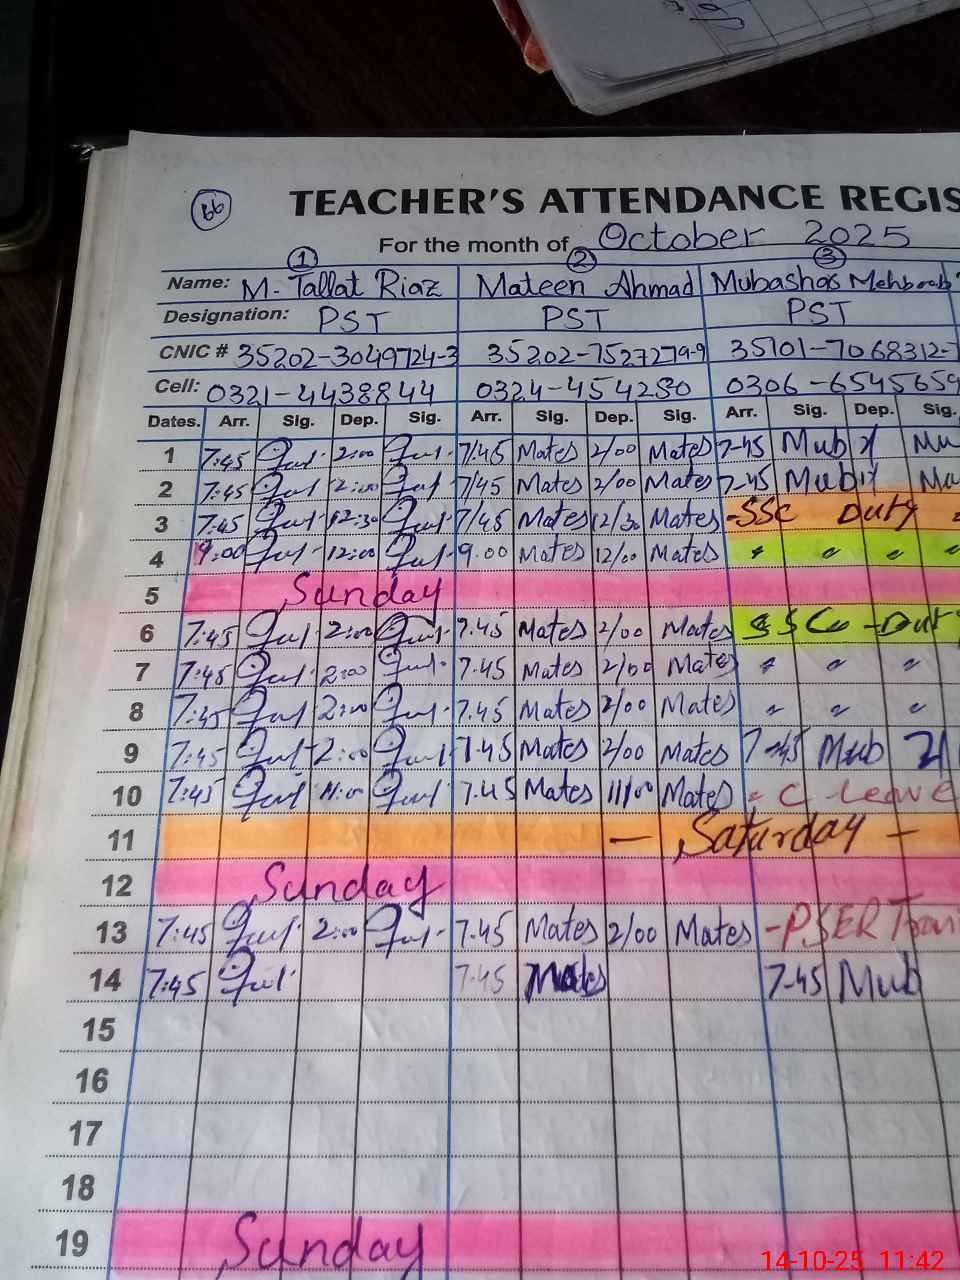 66
TEACHER'S ATTENDANCE REGIS
For the month of October 2025
1 2 3
Name: M. Tallat Riaz Mateen Ahmad Mubashar Mehboob
Designation: PST PST PST
CNIC # 35202-3049724-3 35202-7527279-9 35101-7068312-
Cell: 0321-4438844 0324-454280 0306-6545659
Dates. Arr. Sig. Dep. Sig. Arr. Sig. Dep. Sig. Arr. Sig. Dep. Sig.
1 7:45 2:00 7/45 Mates 2/00 Mates 7-45 Mub Mu
2 7:45 2:00 7/45 Mates 2/00 Mates 7-45 Mub Mu
3 7:45 12:30 7/45 Mates 12/30 Mates -SSC Duty
4 9:00 12:00 9.00 Mates 12/00 Mates " " " "
5 Sunday
6 7:45 2:00 7.45 Mates 2/00 Mates SSC -Dut
7 7:45 2:00 7.45 Mates 2/00 Mates " " "
8 7:45 2:00 7.45 Mates 2/00 Mates " " "
9 7:45 2:00 7.45 Mates 2/00 Mates 7-45 Mub 2/
10 7:45 11:00 7.45 Mates 11/00 Mates C leave
11 - Saturday -
12 Sunday
13 7:45 2:00 7.45 Mates 2/00 Mates -PSER Trai
14 7:45 7.45 Mates 7-45 Mub
15
16
17
18
19 Sunday
14-10-25 11:42